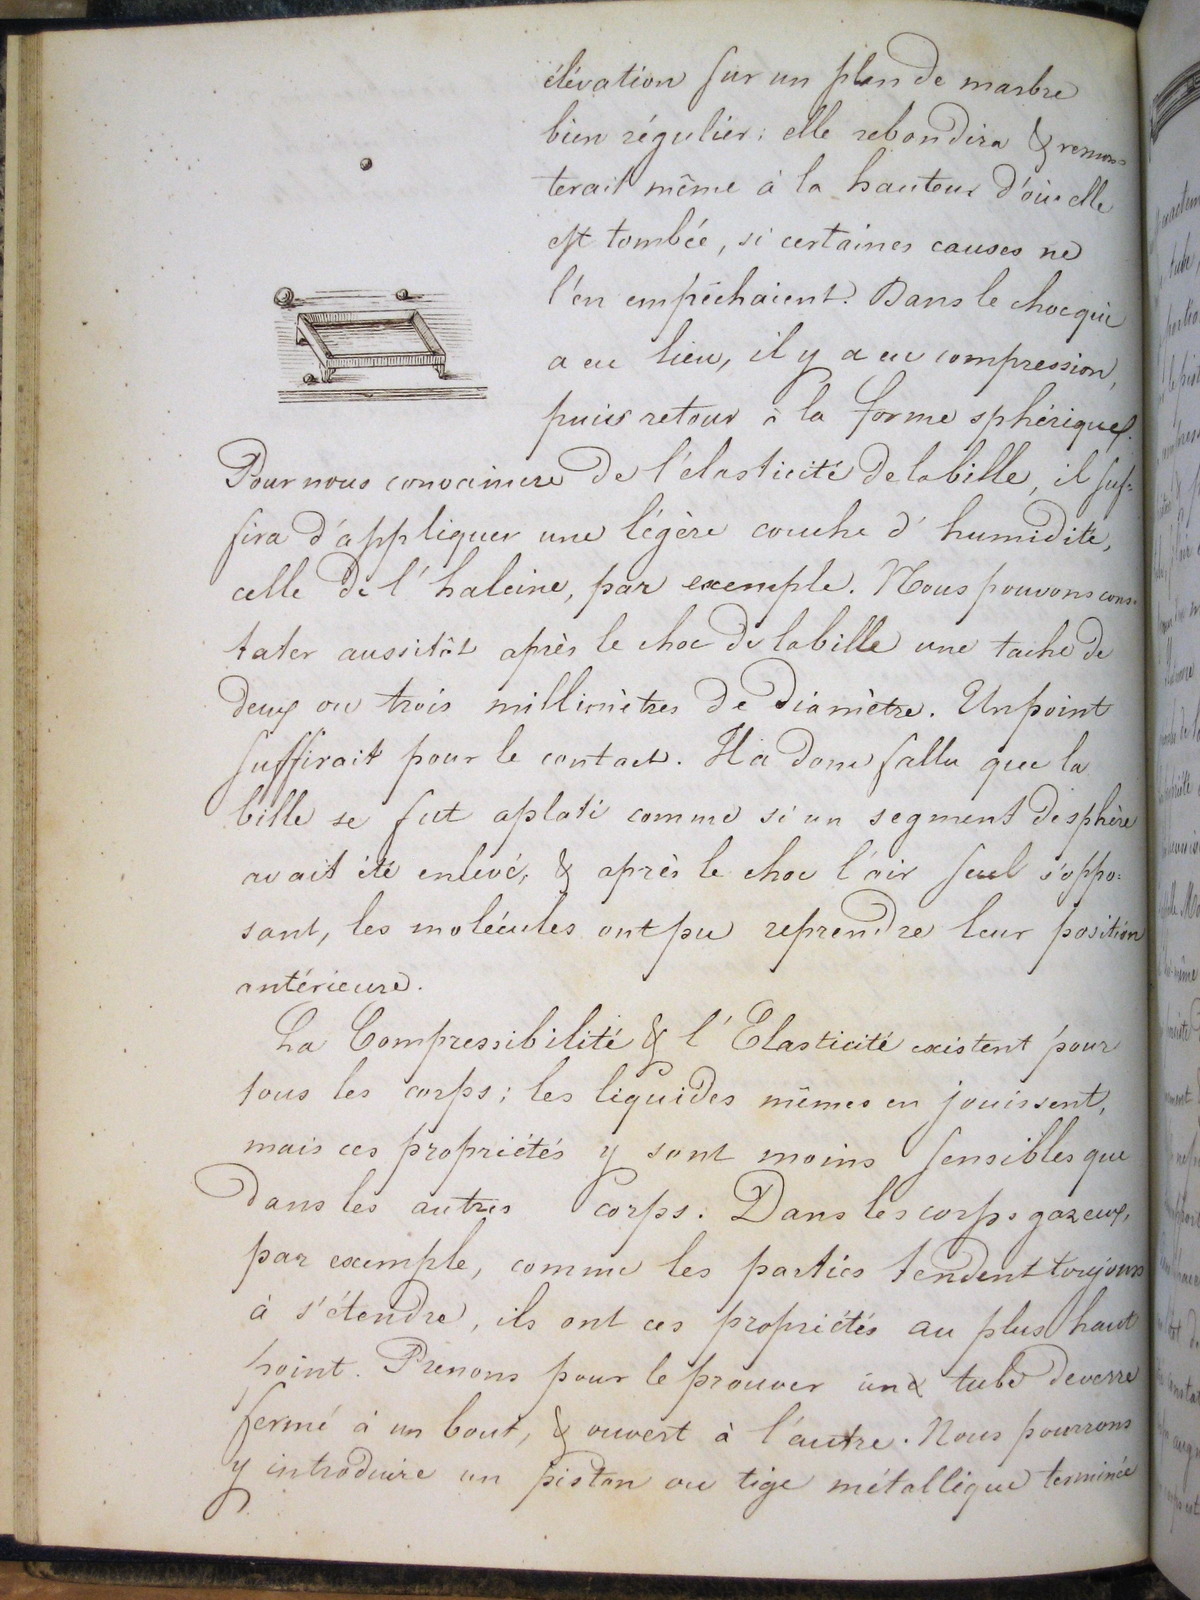 élévation sur un plan de marbre
bien régulier: elle rebondira & remon=
terait même à la hauteur d'où elle
est tombée, si certaines causes ne
l'en empêchaient. Dans le choc qui
a eu lieu, il y a eu compression,
puis retour à la forme sphérique.
Pour nous convaincre de l'élasticité de la bille, il suf=
fira d'appliquer une légère couche d'humidité,
celle de l'haleine, par exemple. Nous pouvons cons=
tater aussitôt après le choc de la bille une tache de
deux ou trois millimètres de diamètre. Un point
suffirait pour le contact. Il a donc fallu que la
bille se fut aplati comme si un segment de sphère
avait été enlevé, & après le choc l'air seul s'oppo=
sant, les molécules ont pu reprendre leur position
antérieure.
La Compressibilité & l'Elasticité existent pour
tous les corps; les liquides mêmes en jouissent,
mais ces propriétés y sont moins sensibles que
dans les autres corps. Dans les corps gazeux,
par exemple, comme les parties tendent toujours
à s'étendre, ils ont ces propriétés au plus haut
point. Prenons pour le prouver un tube de verre
fermé à un bout, & ouvert à l'autre. Nous pourrons
y introduire un piston ou tige métallique terminée